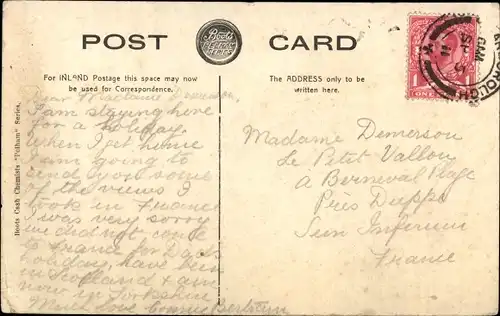 POST CARD
Boots
For INLAND Postage this space may now
be used for Correspondence.
The ADDRESS only to be
written here.
Boots Cash Chemists "Pelham" Series.
Dear Madame Demerson,
I am staying here
for a holiday.
When I get home
I am going to
send you some
of the views I
took in France
I was very sorry
we did not come
to France for Dad's
holiday, have been
in Scotland & am
now in Yorkshire
Much love Connie Bertram
Madame Demerson
Le Petit Vallon
à Berneval Plage
Près Dieppe
Sein Inferieur
France